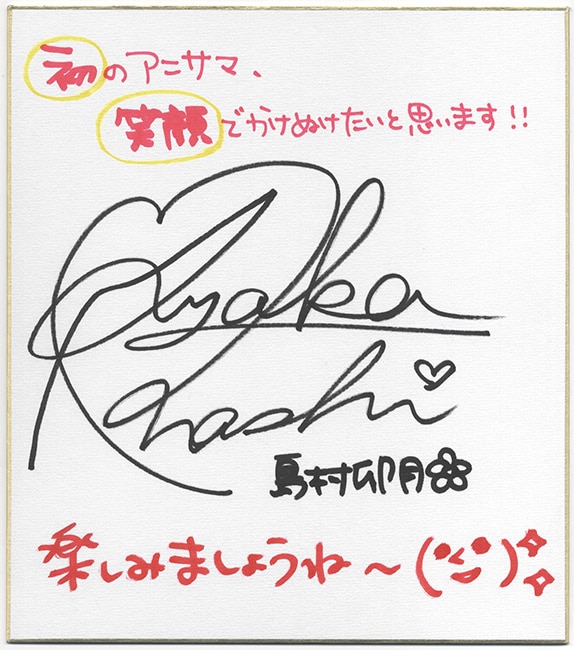 初のアニサマ、
笑顔でかけぬけたいと思います!!
Ayaka
Ohashi
島村卯月
楽しみましょうね~